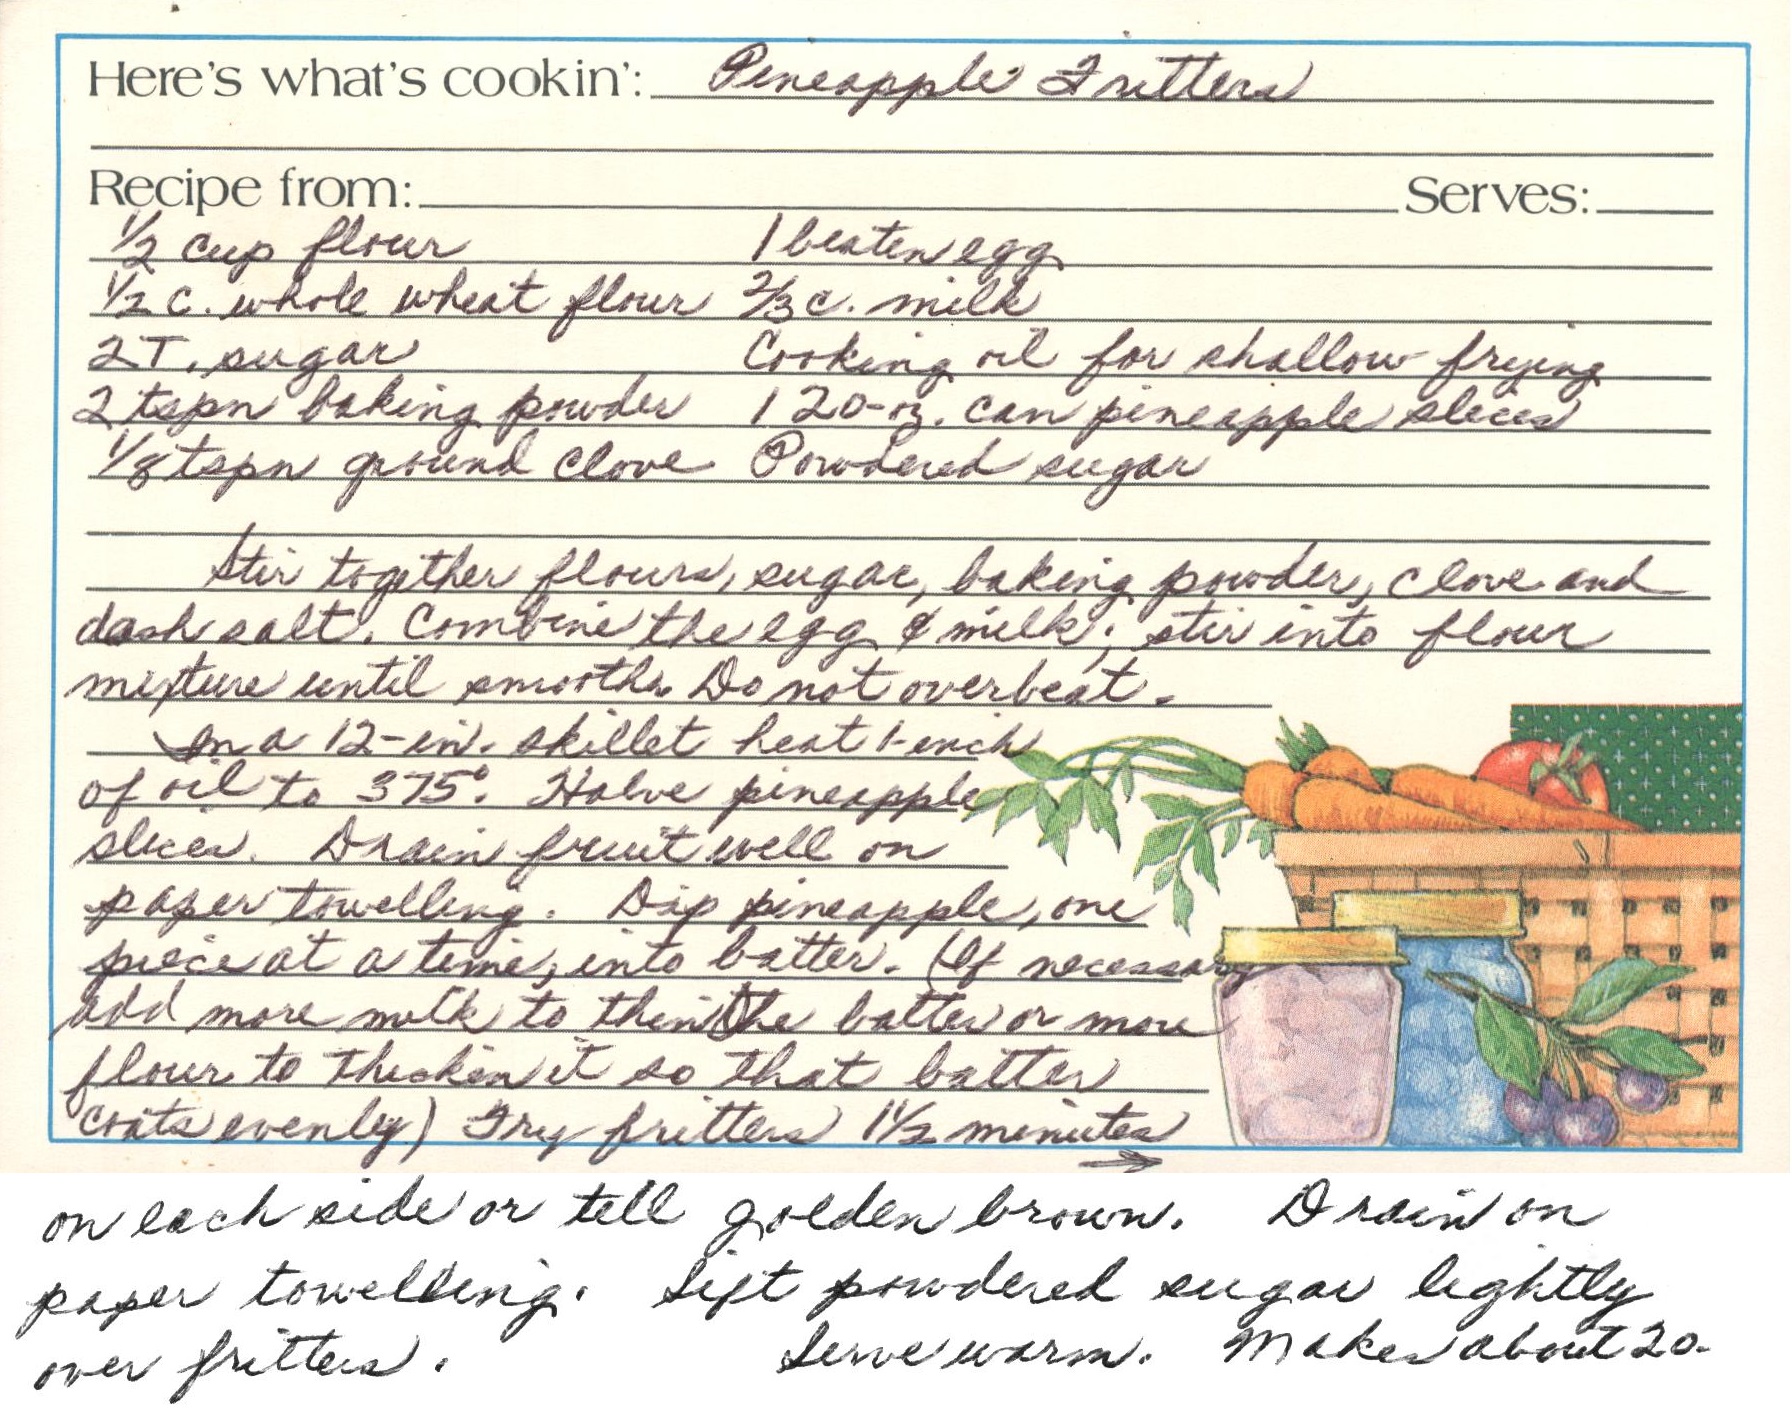 Here's what's cookin': Pineapple Fritters
Recipe from: Serves:
1/2 cup flour 1 beaten egg
1/2 c. whole wheat flour 2/3 c. milk
2 T. sugar Cooking oil for shallow frying
2 tspn baking powder 1 20-oz. can pineapple slices
1/8 tspn ground clove Powdered sugar
Stir together flours, sugar, baking powder, clove and
dash salt. Combine the egg & milk; stir into flour
mixture until smooth. Do not overbeat.
In a 12-in. skillet heat 1-inch
of oil to 375°. Halve pineapple
slices. Drain fruit well on
paper towelling. Dip pineapple, one
piece at a time, into batter. (If necessary
add more milk to thin the batter or more
flour to thicken it so that batter
coats evenly) Fry fritters 1 1/2 minutes
→
on each side or till golden brown. Drain on
paper towelling. Sift powdered sugar lightly
over fritters. Serve warm. Makes about 20.